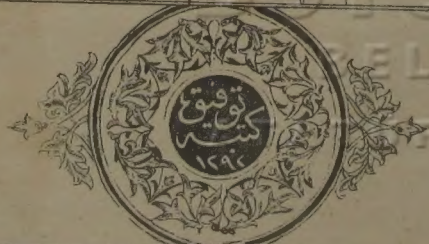 توفيق
كتبه
١٢٩٢